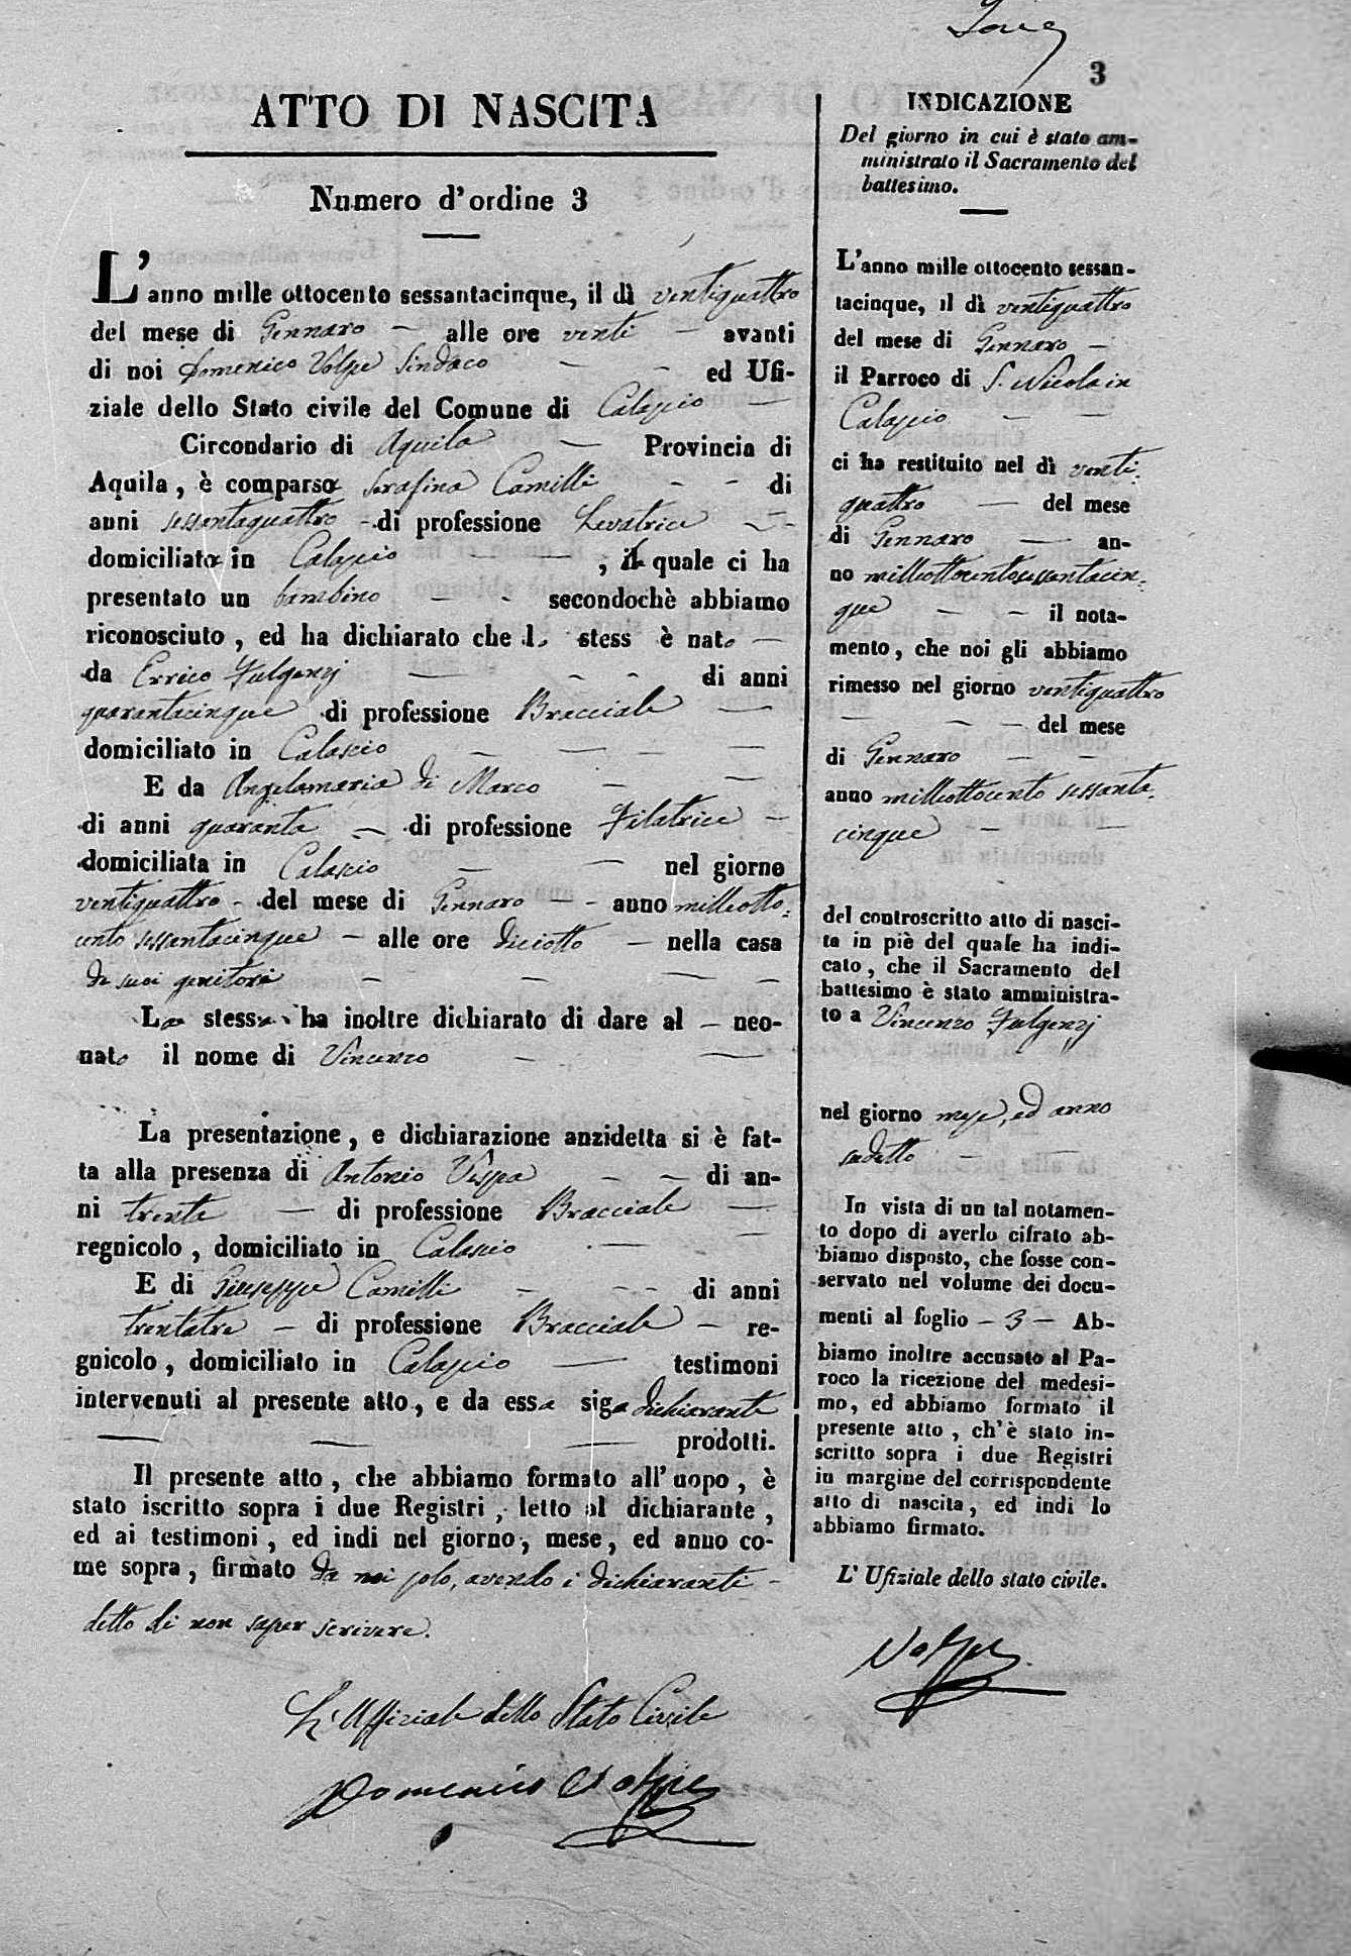 3
ATTO DI NASCITA
Numero d'ordine 3
L'anno mille ottocento sessantacinque, il dì ventiquattro
del mese di Gennaro — alle ore venti — avanti
di noi Domenico Volpe Sindaco — — ed Ufi-
ziale dello Stato civile del Comune di Calascio —
Circondario di Aquila — Provincia di
Aquila, è comparsa Serafina Camilli - - di
anni sessantaquattro - di professione Levatrice - -
domiciliata in Calascio - —, la quale ci ha
presentato un bambino — - secondochè abbiamo
riconosciuto, ed ha dichiarato che lo stess è nato —
da Errico Fulgenzj — - - di anni
quarantacinque di professione Bracciale —
domiciliato in Calascio — — — —
E da Angelamaria di Marco — —
di anni quaranta — di professione Filatrice -
domiciliata in Calascio — — nel giorno
ventiquattro - del mese di Gennaro — - anno milleotto=
cento sessantacinque — alle ore diciotto — nella casa
de suoi genitori — — — —
La stessa ha inoltre dichiarato di dare al — neo-
nato il nome di Vincenzo - —
La presentazione, e dichiarazione anzidetta si è fat-
ta alla presenza di Antonio Vespa - - di an-
ni trenta — di professione Bracciale —
regnicolo, domiciliato in Calascio — —
E di Giuseppe Camilli - - - di anni
trentatre — di professione Bracciale — re-
gnicolo, domiciliato in Calascio — testimoni
intervenuti al presente atto, e da essa siga dichiarante
— — — prodotti.
Il presente atto, che abbiamo formato all' uopo, è
stato iscritto sopra i due Registri, letto al dichiarante,
ed ai testimoni, ed indi nel giorno, mese, ed anno co-
me sopra, firmato da noi solo, avendo i dichiaranti -
detto di non saper scrivere.
L'Uffiziale dello Stato Civile
Domenico Volpe
INDICAZIONE
Del giorno in cui è stato am-
ministrato il Sacramento del
battesimo.
L'anno mille ottocento sessan-
tacinque, il dì ventiquattro
del mese di Gennaro —
il Parroco di S. Nicola in
Calascio — —
ci ha restituito nel dì venti=
quattro — del mese
di Gennaro — an-
no milleottocentosessantacin=
que — - il nota-
mento, che noi gli abbiamo
rimesso nel giorno ventiquattro
— - — del mese
di Gennaro — -
anno milleottocento sessanta=
cinque - —
del controscritto atto di nasci-
ta in piè del quale ha indi-
cato, che il Sacramento del
battesimo è stato amministra-
to a Vincenzo Fulgenzj
nel giorno mese, ed anno
sudetto - -
In vista di un tal notamen-
to dopo di averlo cifrato ab-
biamo disposto, che fosse con-
servato nel volume dei docu-
menti al foglio — 3 — Ab-
biamo inoltre accusato al Pa-
roco la ricezione del medesi-
mo, ed abbiamo formato il
presente atto, ch'è stato in-
scritto sopra i due Registri
in margine del corrispondente
atto di nascita, ed indi lo
abbiamo firmato.
L' Ufiziale dello stato civile.
Volpe